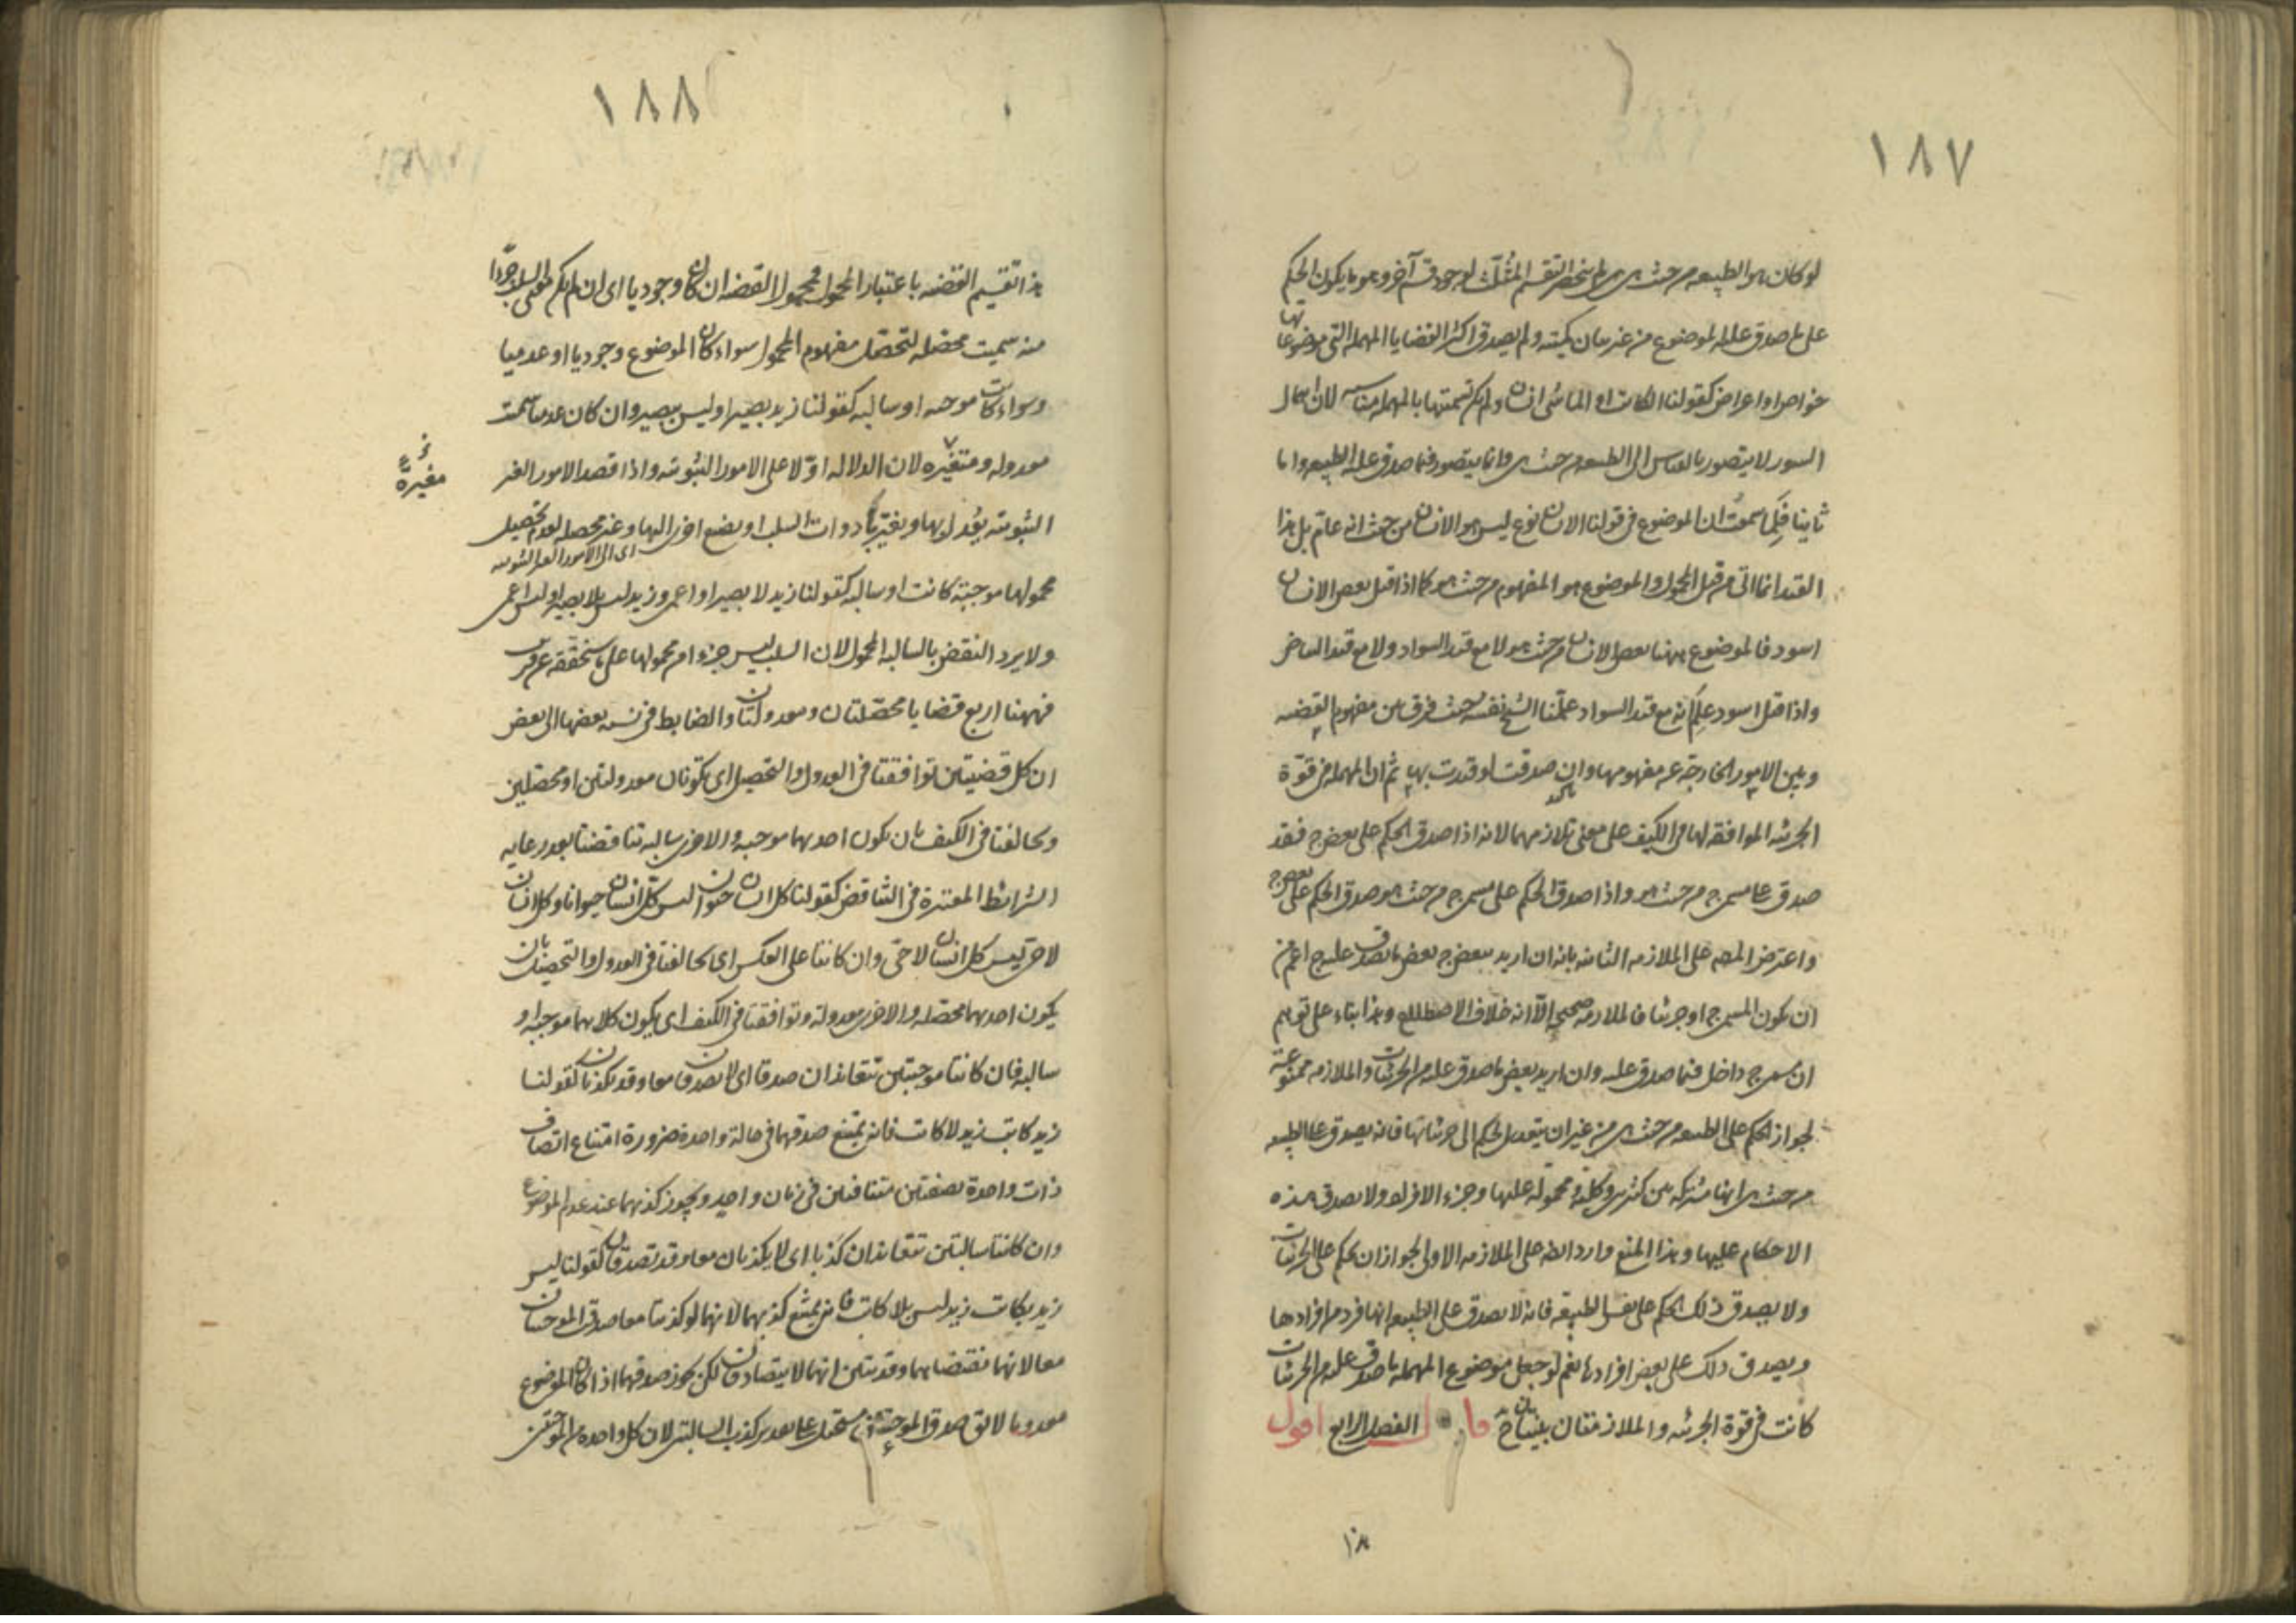 ١٨٧
لو كان هو الطبيعه من حيث هى هى لم ينحصر التقسيم المثلث لوجود قسم آخر وهو ما يكون الحكم
على ما صدق عليه الموضوع من غير بيان كميته ولم يصدق اكثر القضايا المهمله التى موضوعاتها
خواص او اعراض كقولنا الكاتب او الماشى انسان ولم يكن تسميتها بالمهمله مناسبه لان اهمال
السور لا يتصور بالقياس الى الطبيعه من حيث هى وانما يتصور فيما صدق عليه الطبيعه واما
ثانيا فلما سمعت ان الموضوع فى قولنا الانسان نوع ليس هو الانسان من حيث انه عام بل هذا
القيد انما اتى من قبل المحمول والموضوع هو المفهوم من حيث هو كما اذا قيل بعض الانسان
اسود فالموضوع ههنا بعض الانسان من حيث هو لا مع قيد السواد ولا مع قيد البياض
واذا قيل اسود علم انه مع قيد السواد علمنا الشيخ نفسه حيث فرق بين مفهوم القضيه
وبين الامور الخارجة عن مفهومها وان صدقت او قيدت بها ثم ان المهمله فى قوة
الجزئيه الموافقه لها فى الكيف على معنى تلازمهما لانه اذا صدق الحكم على بعض ج فقد
صدق على مسمى ج من حيث هو واذا صدق الحكم على مسمى ج من حيث هو صدق الحكم على بعض ج
واعترض المصه على الملازمه الثانيه بانه ان اريد ببعض ج بعض ما يصدق عليه ج اعم من
ان يكون المسمى ج او جزئيا فالملازمه صحيح الا انه خلاف الاصطلاح وهذا بناء على توهم
ان مسمى ج داخل فيما صدق عليه وان اريد بعض ما صدق عليه من الجزئيات والملازمه ممنوعة
لجواز الحكم على الطبيعه من حيث هى من غير ان يتعدى الحكم الى جزئياتها فانه يصدق على الطبيعه
من حيث هى انها مشتركه بين كثيرين وكلية ومحمولة عليها وجزء الافراد ولا يصدق هذه
الاحكام عليها وهذا المنع وارد ايضه على الملازمه الاولى لجواز ان يحكم على الجزئيات
ولا يصدق ذلك الحكم على نفس الطبيعه فانه لا يصدق على الطبيعه انها فرد من افرادها
ويصدق ذلك على بعض افرادها نعم لو جعل موضوع المهمله ما صدق عليه من الجزئيات
كانت فى قوة الجزئيه والملازمتان بينتان ح قال الفصل الرابع اقول
١٨٨
هذا تقسيم القضيه باعتبار المحمول فمحمول القضيه ان كان وجوديا اى ان لم يكن معنى السلب جزءا
منه سميت محصله لتحصل مفهوم المحمول سواء كان الموضوع وجوديا او عدميا
وسواء كانت موجبه او سالبه كقولنا زيد بصير او ليس ببصير وان كان عدميا سميت
معدوله ومتغيره لان الدلاله اولا على الامور الثبوتيه واذا قصد الامور الغير
مغيرة
الثبوتيه يعدل بها ويغير بادوات السلب او يضع اخرى اليها وغير محصله لعدم تحصيل
اى الى الامور الغير الثبوتيه
محمولها موجبة كانت او سالبه كقولنا زيد لا بصير او اعمى وزيد ليس بلا بصير او ليس اعمى
ولا يرد النقض بالسالبه المحمول لان السلب ليس جزءا من محمولها على ما ستحققه عن قريب
فههنا اربع قضايا محصلتان ومعدولتان والضابط فى نسبه بعضها الى بعض
ان كل قضيتين توافقتا فى العدول والتحصيل اى تكونان معدولتين او محصلتين
وتخالفتا فى الكيف بان يكون احديهما موجبه والاخرى سالبه تناقضتا بعد رعايه
الشرائط المعتبرة فى التناقض كقولنا كل انسان حيوان ليس كل انسان حيوانا وكل انسان
لا حى ليس كل انسان لا حى وان كانتا على العكس اى تخالفتا فى العدول والتحصيل بان
يكون احديهما محصله والاخرى معدولة وتوافقتا فى الكيف اى يكون كلاهما موجبه او
سالبه فان كانتا موجبتين تتعاندان صدقا اى لا يصدقان معا وقد تكذبان كقولنا
زيد كاتب زيد لا كاتب فانه يمتنع صدقهما فى حالة واحدة ضرورة امتناع اتصاف
ذات واحدة بصفتين متنافيتين فى زمان واحد ويجوز كذبهما عند عدم الموضوع
وان كانتا سالبتين تتعاندان كذبا اى لا يكذبان معا وقد تصدقان كقولنا ليس
زيد بكاتب زيد ليس بلا كاتب فانه يمتنع كذبهما لانهما لو كذبتا معا صدق الموجبتان
معا لانهما نقيضاهما وقد تبين انهما لا يتصادقان لكن يجوز صدقهما اذا كان الموضوع
معدوما لا يق صدق الموجبتين مستحيل على تقدير كذب السالبتين لان كل واحدة من الموجبتين